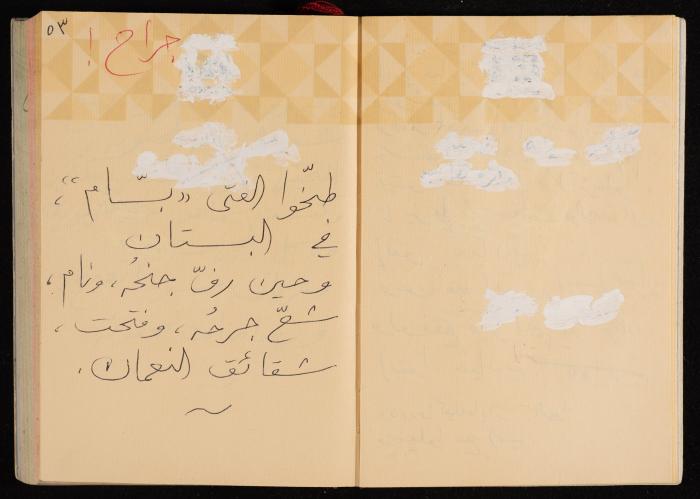 ٥٣
جراح !
طخّوا الفتى «بسّام»،
في البستان
وحين رفّ جنحُه، ونام،
شعّ جرحُه، وفتّحت،
شقائق النعمان.